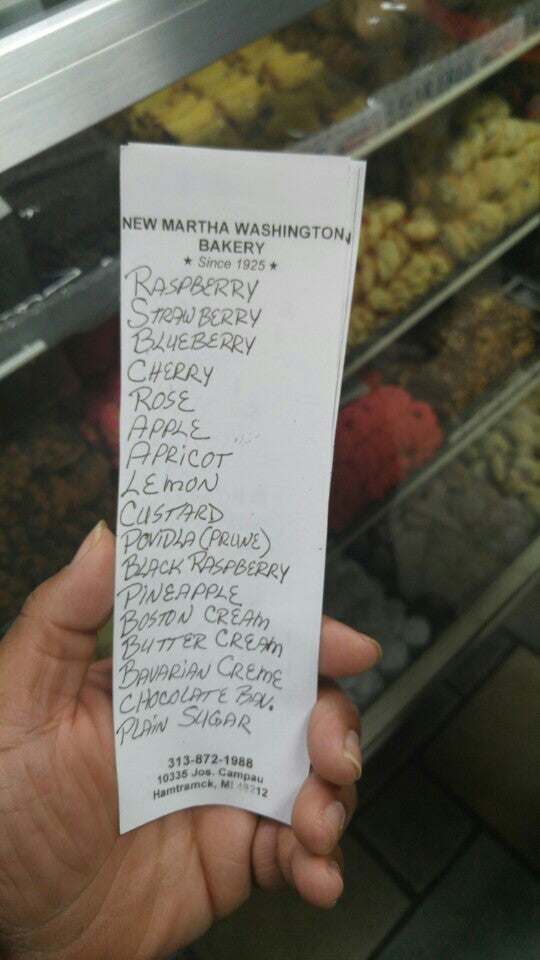 NEW MARTHA WASHINGTON
BAKERY
★ Since 1925 ★
RASPBERRY
STRAWBERRY
BLUEBERRY
CHERRY
ROSE
APPLE
APRICOT
LEMON
CUSTARD
POVIDLA (PRUNE)
BLACK RASPBERRY
PINEAPPLE
BOSTON CREAM
BUTTER CREAM
BAVARIAN CREME
CHOCOLATE BAV.
PLAIN SUGAR
313-872-1988
10335 Jos. Campau
Hamtramck, MI 48212